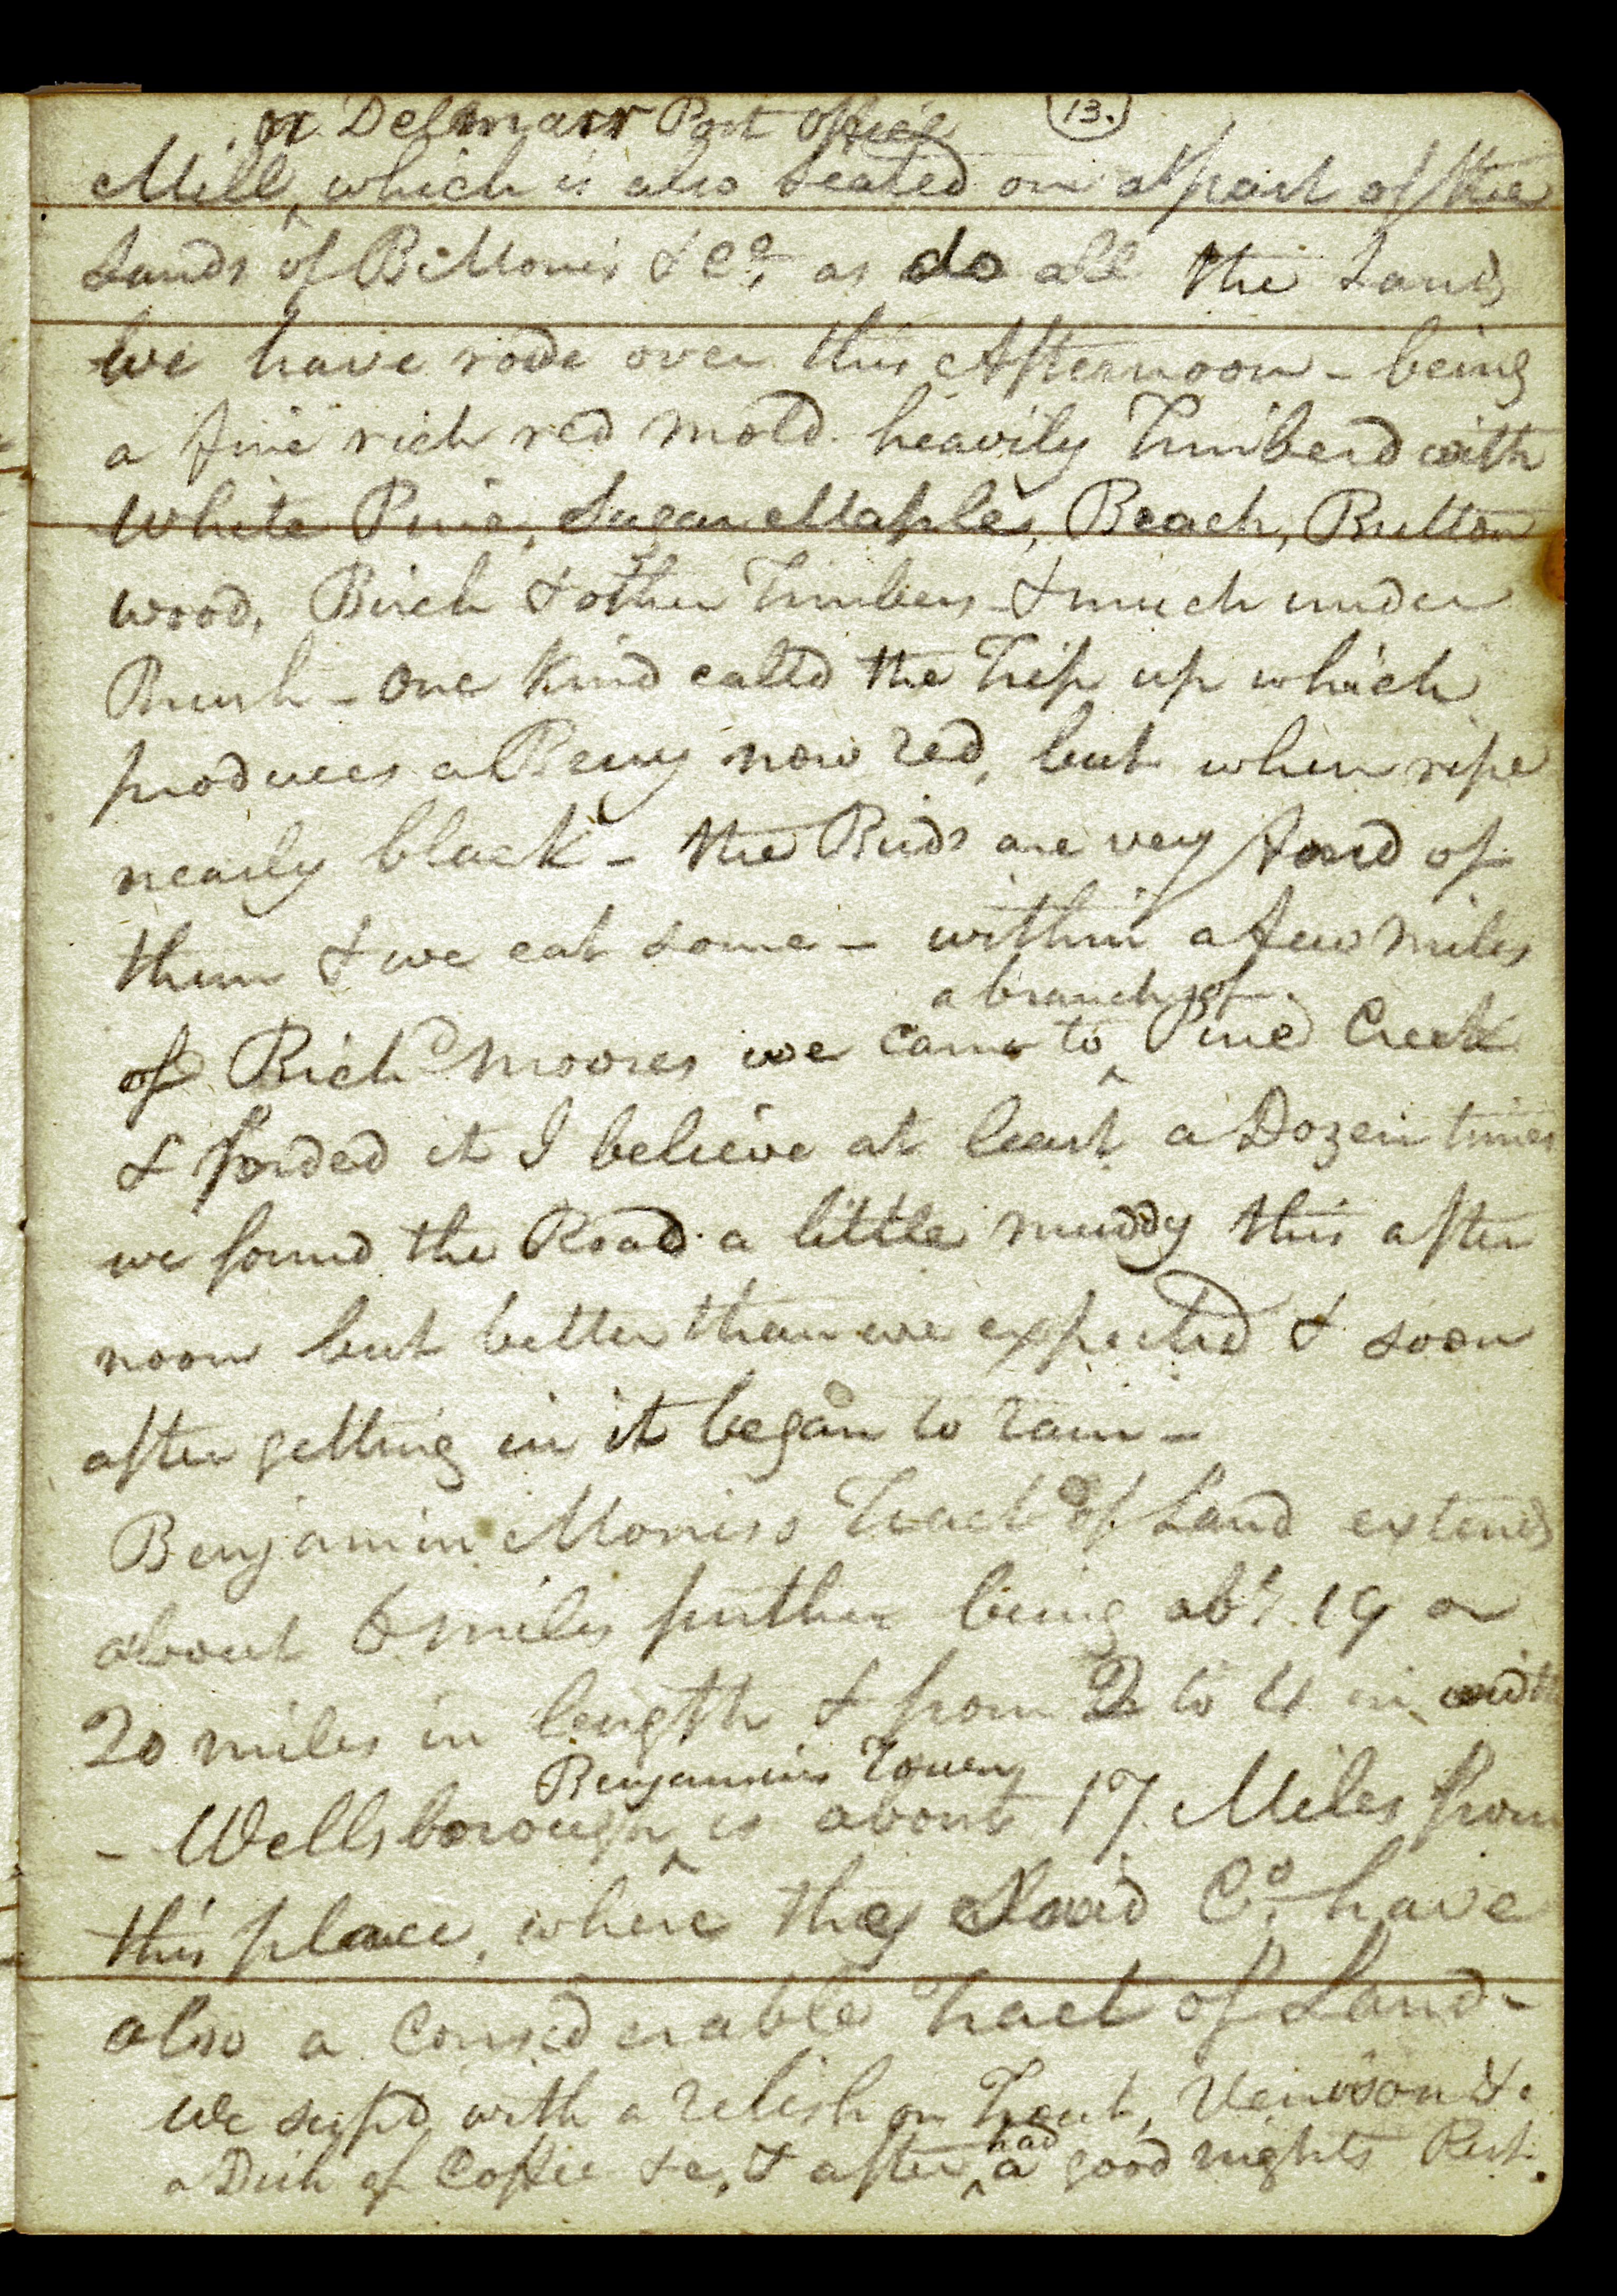 or Delmarr Post Office
13.
Mill, which is also seated on a part of the
Lands of B Morris & Co. as do all the Lands
we have rode over this Afternoon - being
a fine rich red mold heavily Timberd with
White Pine, Sugar Maples, Beach, Button
wood, Birch & other Timbers & much under
Brush - one Kind called the Trip up which
produces a Berry now red, but when ripe
nearly black - the Birds are very fond of
them & we eat some - within a few miles
a branch of
of Richd Moores we came to Pine Creek
& forded it I believe at least a Dozen times
we found the Road a little muddy this after
noon but better than we expected & soon
after getting in it began to rain -
Benjamin Morriss Tract of Land extends
about 6 miles further being abt. 19 or
20 miles in length & from 2 to 4 in width
Benjamins Town
- Wellsborough is about 17 Miles from
this place, where they Said Co. have
also a Considerable tract of Land -
We supd with a relish on Trout, Venison &
had
a Dish of Coffee &c, & after a good nights Rest.